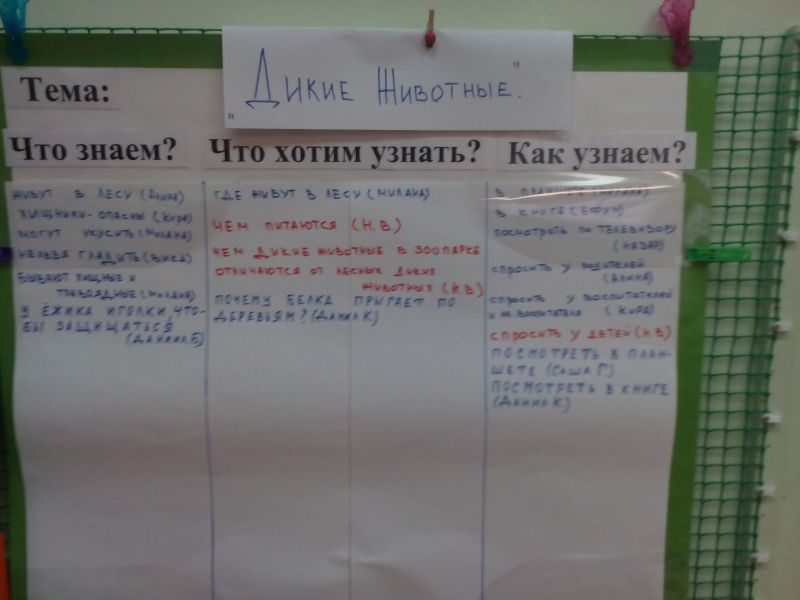 "Дикие Животные".
Тема:
Что знаем?
живут в лесу (Алина)
хищники-опасны (Кира)
могут укусить (Милана)
нельзя гладить (Вика)
бывают хищные и
травоядные (Милана)
у ёжика иголки, что-
бы защищаться
(Даниил Б)
Что хотим узнать?
где живут в лесу (Милана)
чем питаются (Н.В.)
чем дикие животные в зоопарке
отличаются от лесных диких
животных (Н.В.)
почему белка прыгает по
деревьям? (Данил К.)
Как узнаем?
в
в книге (Ефим)
посмотреть по телевизору
(Назар)
спросить у родителей
(Алина)
спросить у воспитателей
и
(Кира)
спросить у детей (Н.В)
посмотреть в план-
шете (Саша Г.)
посмотреть в книге
(Данил К)